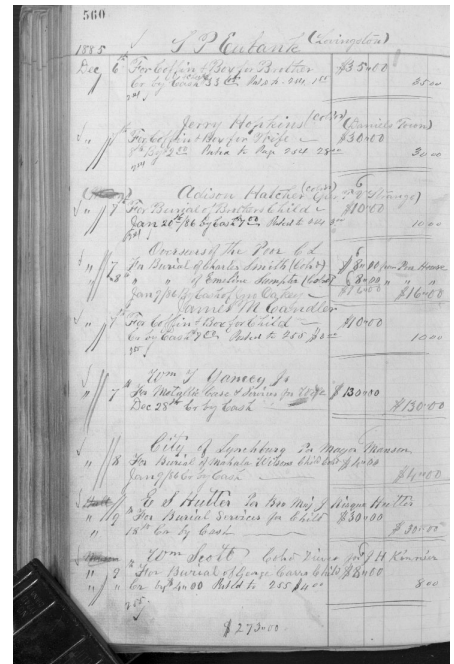 560
1885 S P Eubank (Livingston)
Dec 6th For Coffin & Box for Brother $35.00
Cr by Cash 33 Posted to 254 35.00
Jerry Hopkins (Col'rd) (Daniels Town)
" 7th For Coffin & Box for Wife $30.00
Posted to Page 254 30.00
Adison Hatcher (col'd)
" 7th For Burial of Brothers Child $10.00
Jan 20th/86 by Cash Posted to 254 10.00
Overseers of the Poor
" 7 For Burial of Charles Smith (Col'd) $8.00 from Poor House
" 8 " " of Emeline Sampler (Col'd) $8.00 " " "
Jan 9/86 by Cash $16.00 $16.00
James M Candler
" 7th For Coffin & Box for Child $10.00
Cr by Cash Posted to 255 10.00
Wm T Yancey Jr
" 7th For Metallic Case & Services for Wife $130.00
Dec 28th Cr by Cash $130.00
City of Lynchburg Per Mayor Manson
" 8 For Burial of Mahala Child $4.00
Jan 9/86 Cr by Cash $4.00
E S Hutter Per Bro Maj J Risque Hutter
" 9 For Burial Services for Child $30.00
18th Cr by Cash $30.00
Wm Scott Col'd J H Kinnier
" 9 For Burial of George Carrs Child $8.00
" " Cr by 4.00 Posted to 255 $4.00 8.00
$273.00